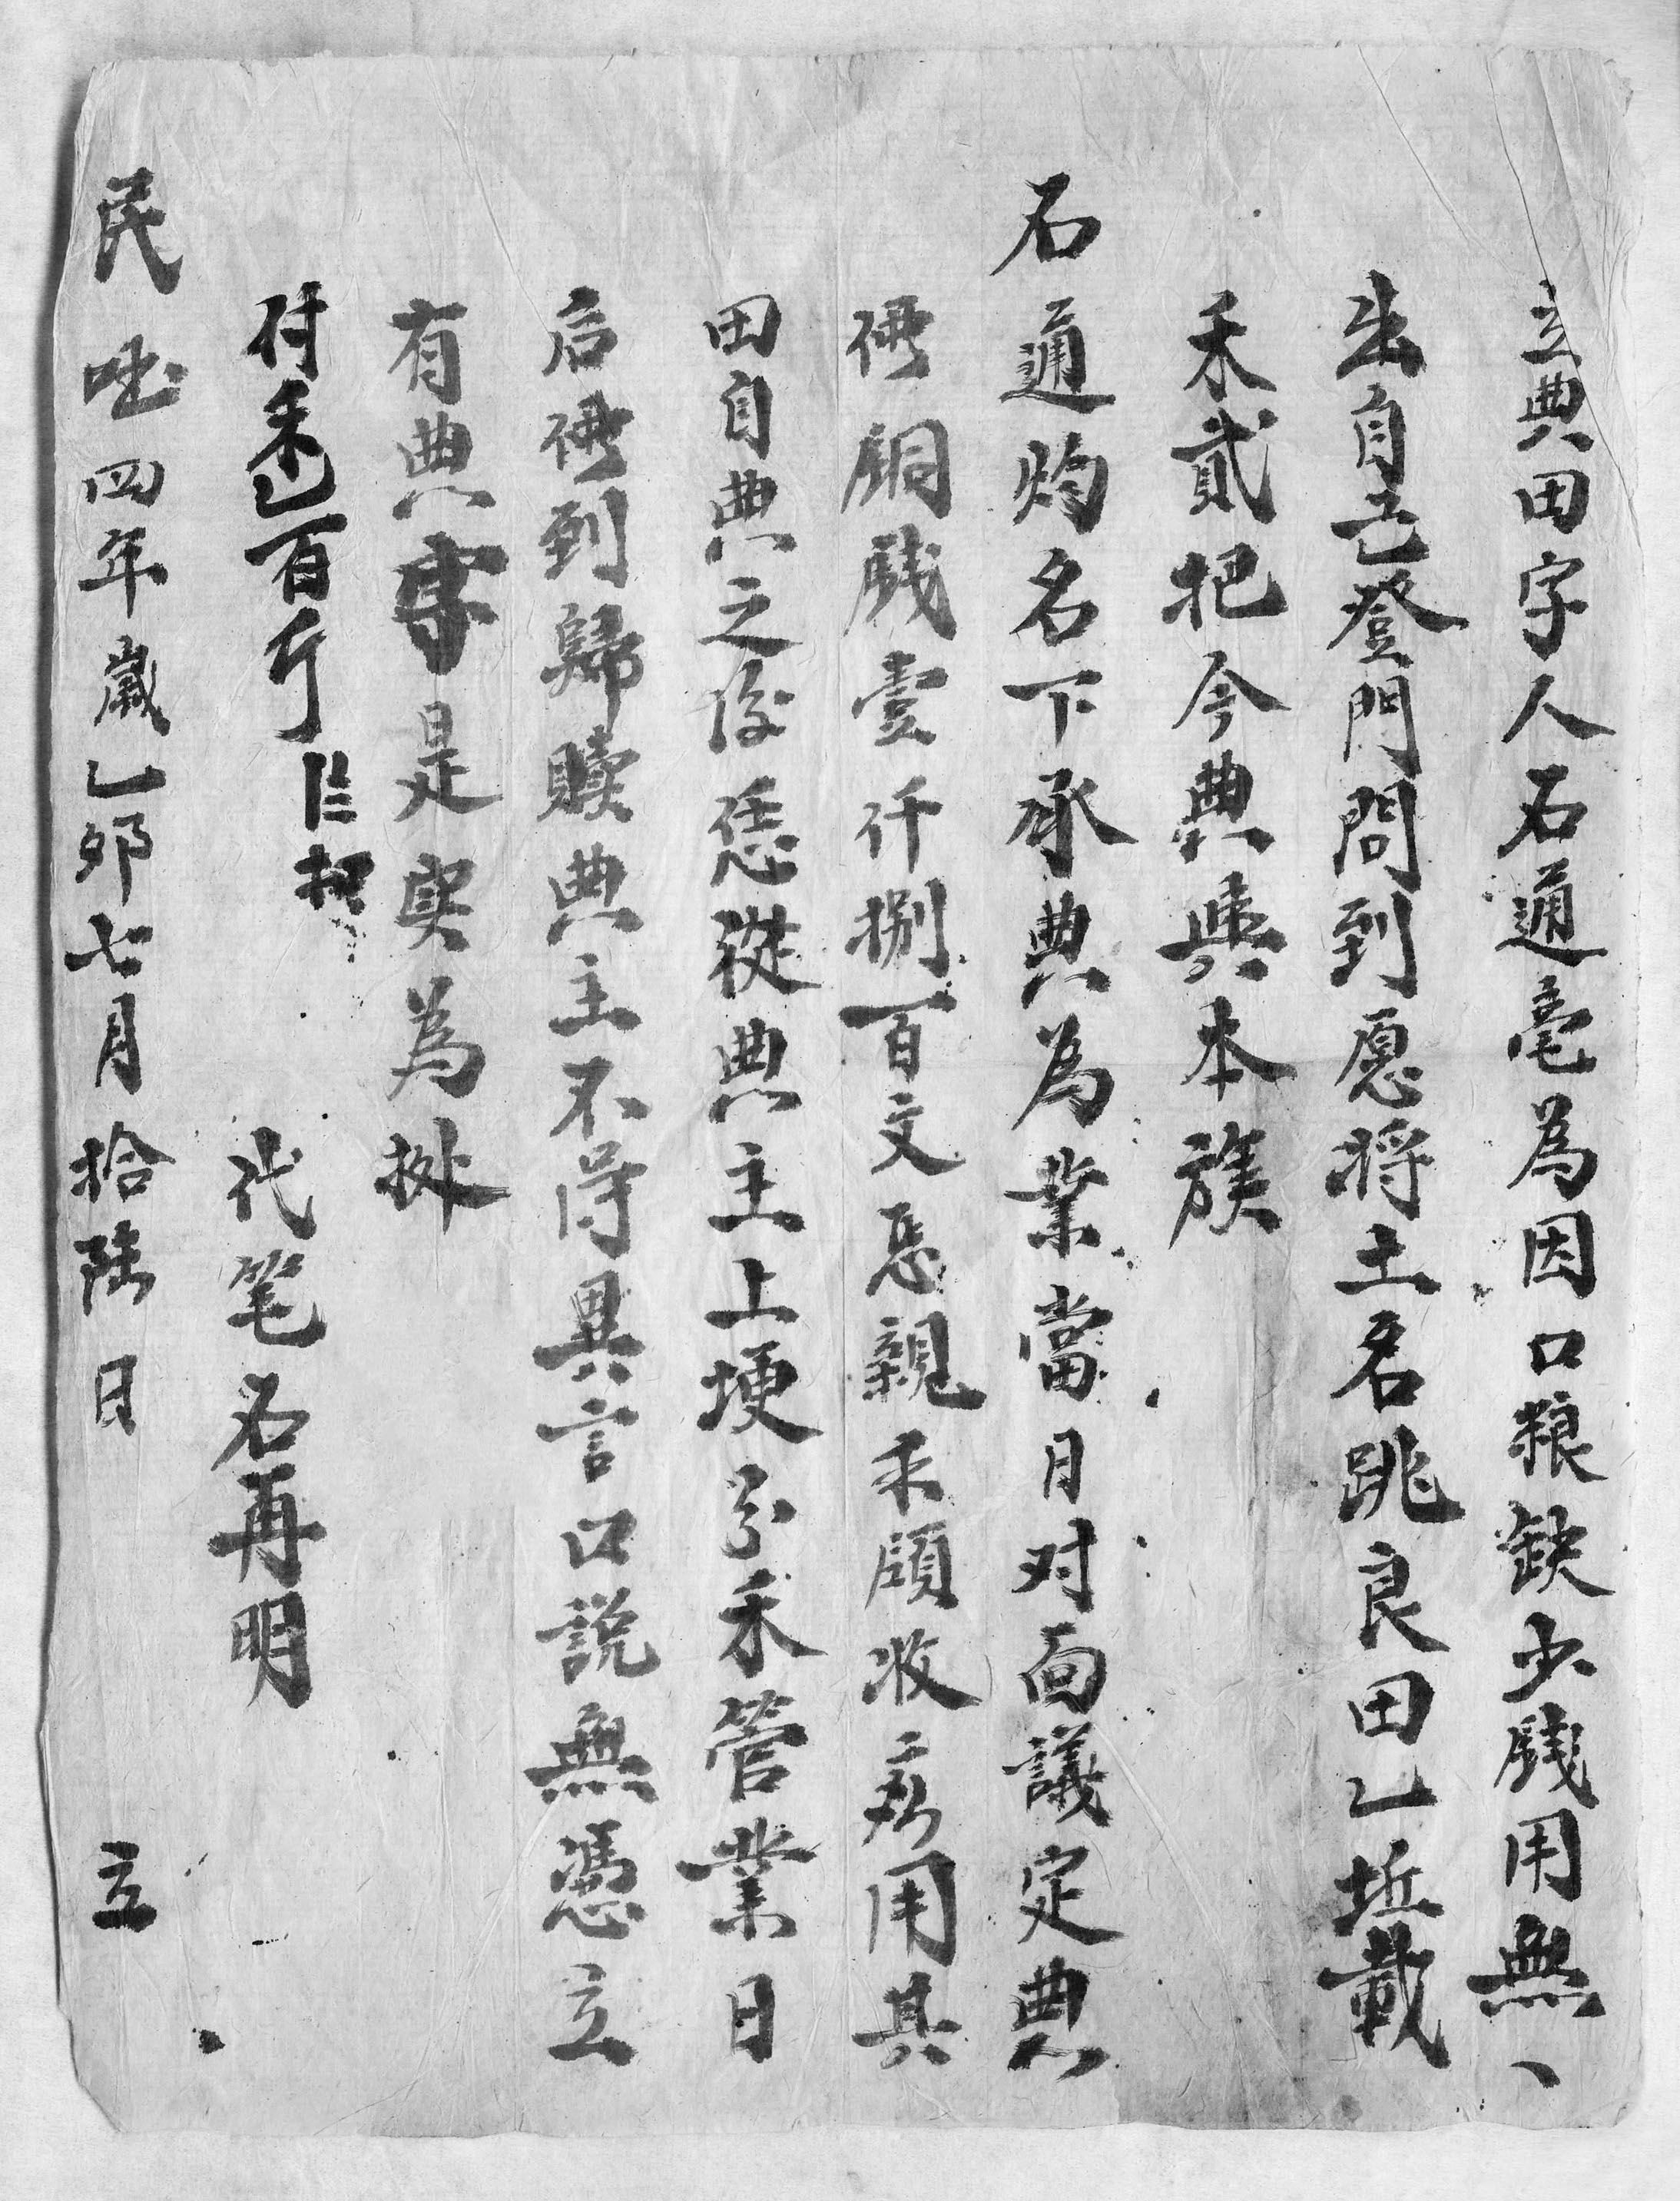 立典田字人石通毫為因口粮缺少錢用無
出自己登門問到愿將土名跳良田乙坵載
禾貳把今典與本族
石通灼名下承典為業當日对面議定典
價銅錢壹仟捌百文恁親手領收應用其
田自典之後恁從典主上埂分禾管業日
后價到歸贖典主不得異言口説無憑立
有典字是實為據
付禾乙百斤
代笔石再明
民國四年歲乙卯七月拾陸日 立